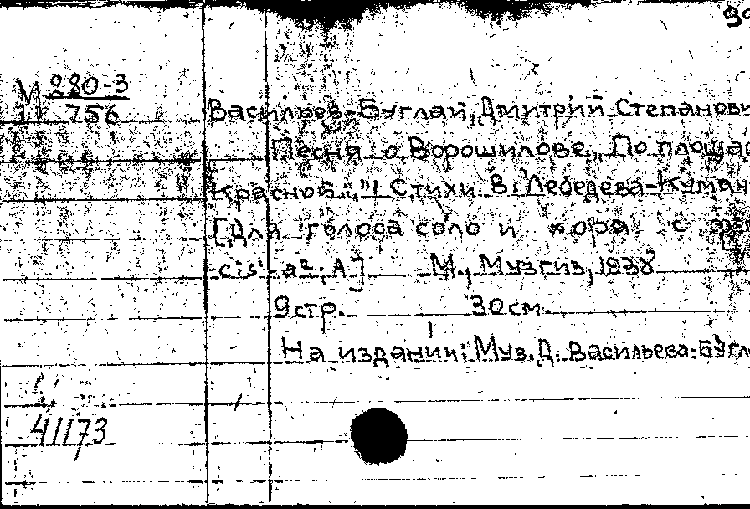 М 280-3
756
Васильев-Буглай, Дмитрий Степанович
Песня о Ворошилове „По площад
Красной...". Стихи В. Лебедева-Куман
[Для голоса соло и хора с
cis¹-a²; A] М., Музгиз, 1938
9 стр. 30 см.
На издании: Муз. Д. Васильева-Бугл
41173